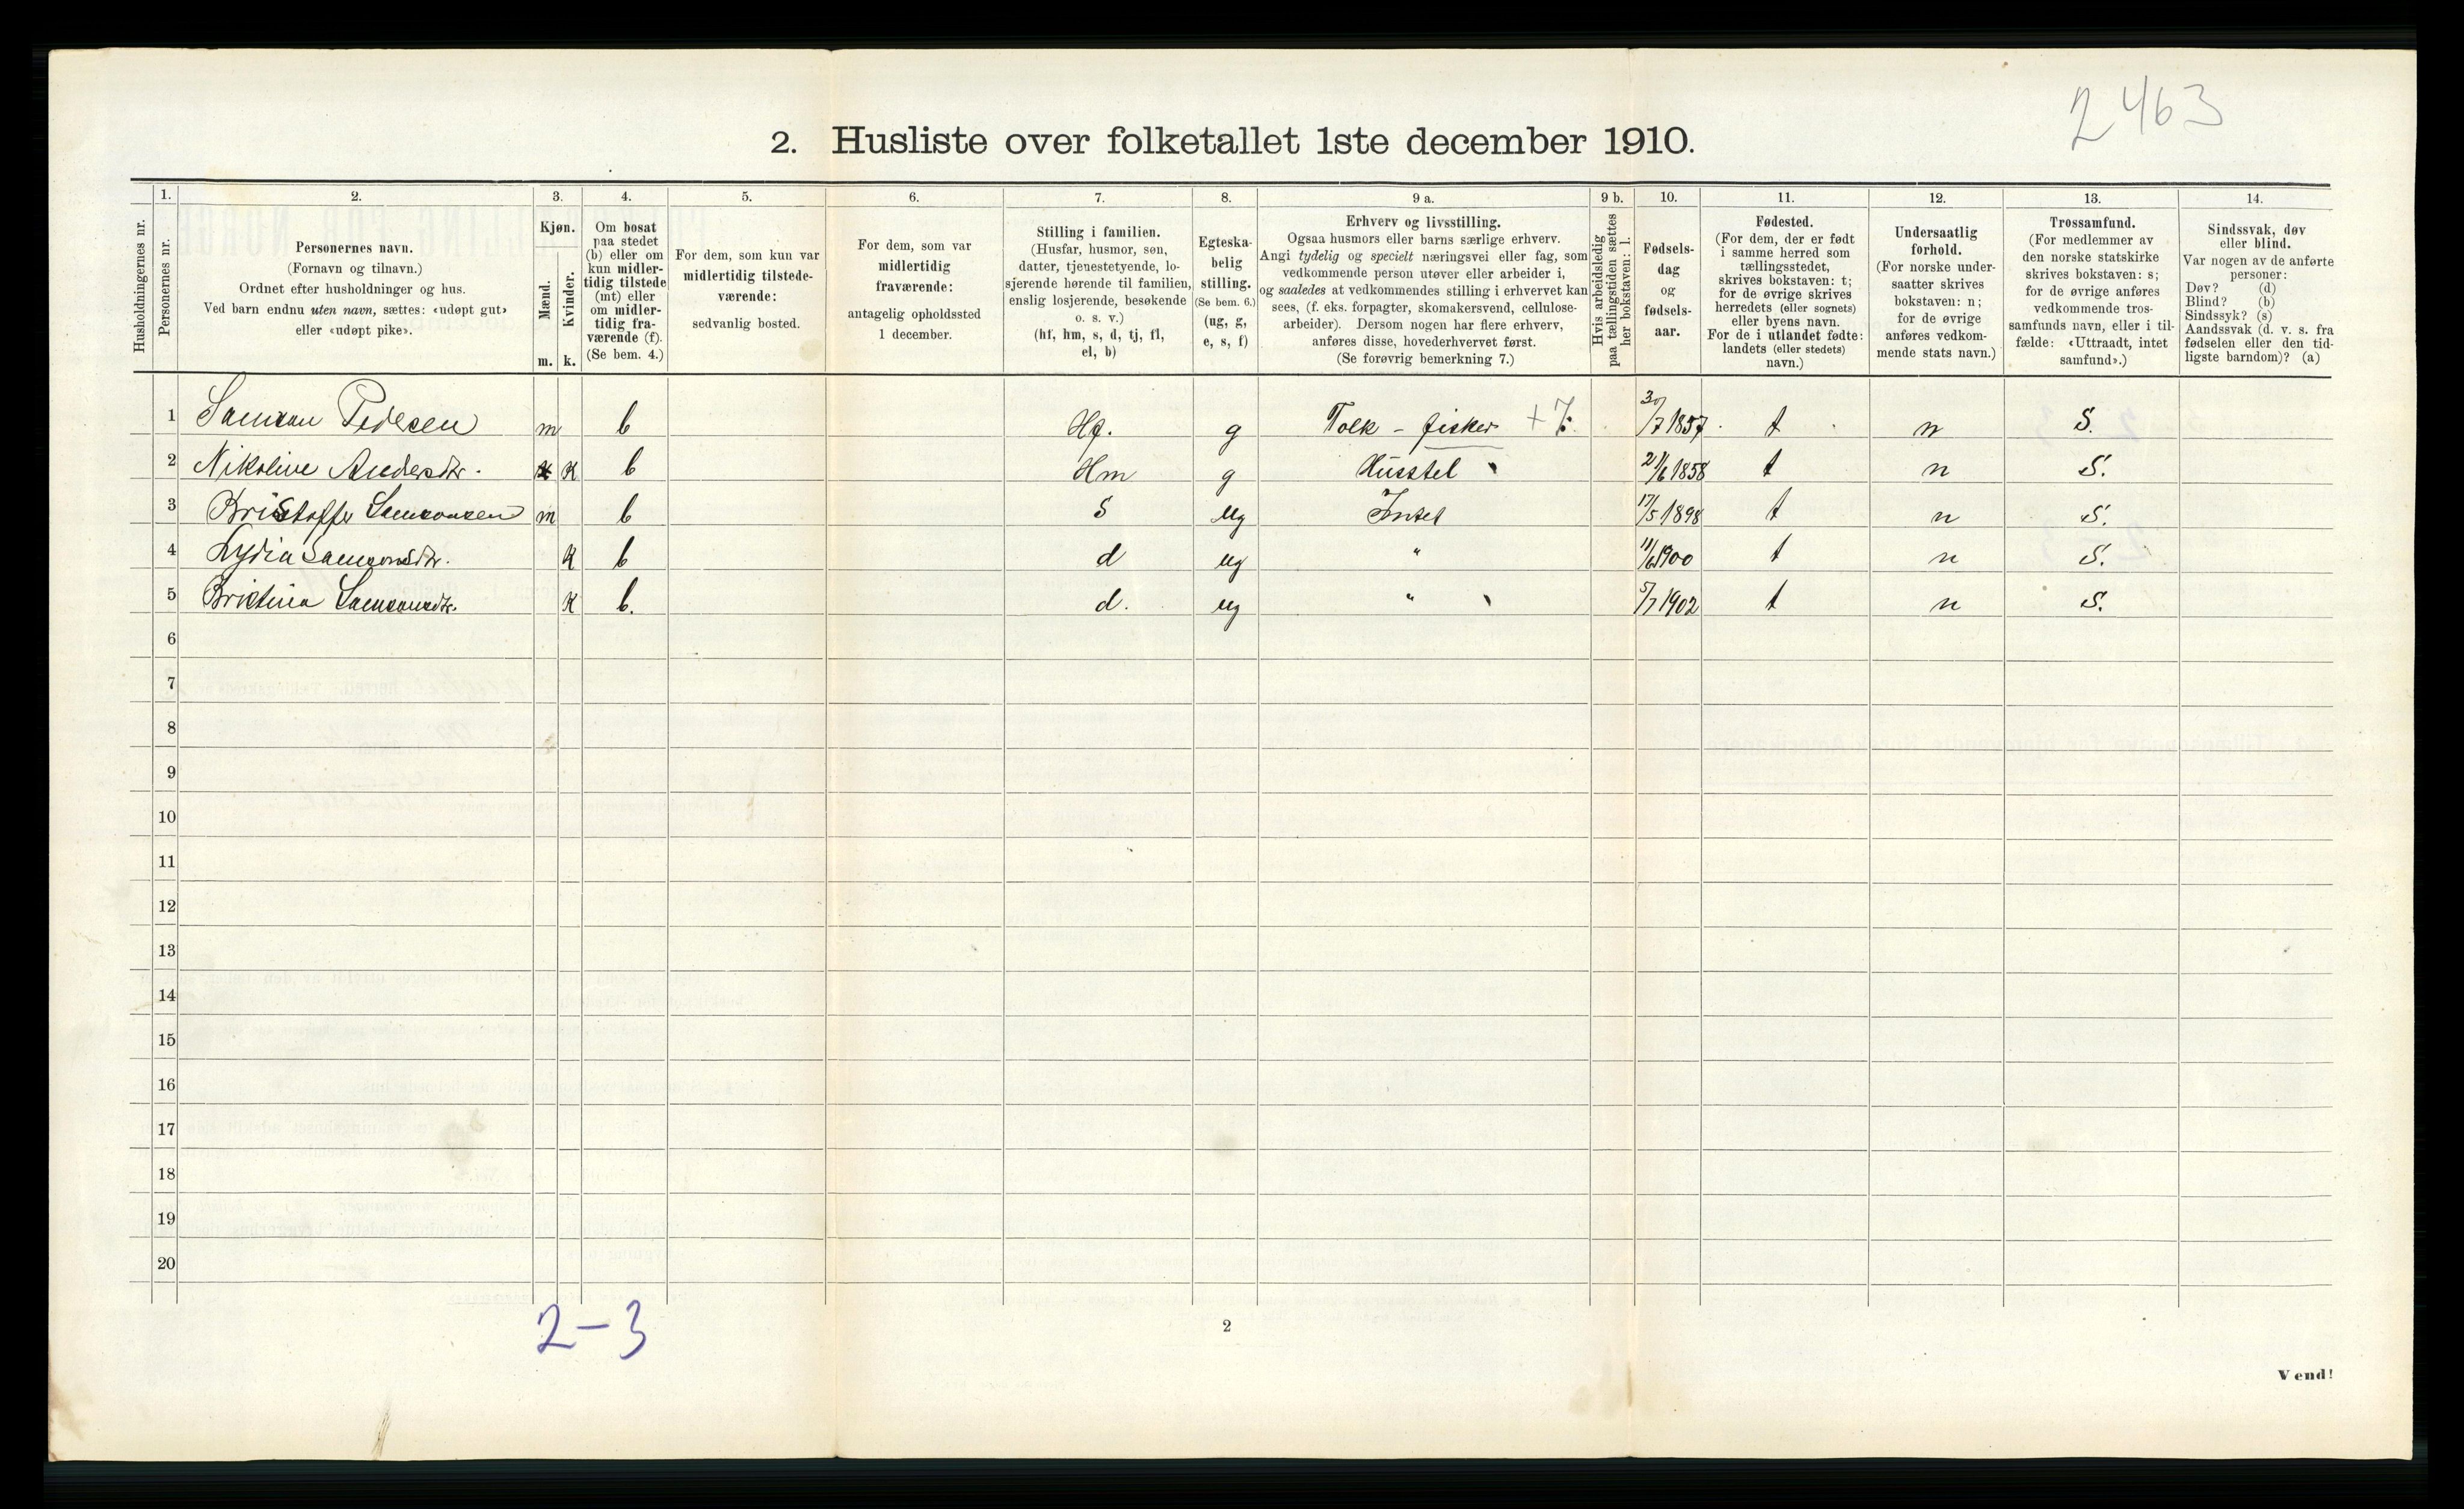 2463
2. Husliste over folketallet 1ste december 1910.
Husholdningernes nr.
1. Personernes nr.
2. Personernes navn. (Fornavn og tilnavn.) Ordnet efter husholdninger og hus. Ved barn endnu uten navn, sættes: «udøpt gut» eller «udøpt pike».
3. Kjøn. Mænd. m. Kvinder. k.
4. Om bosat paa stedet (b) eller om kun midlertidig tilstede (mt) eller om midlertidig fraværende (f). (Se bem. 4.)
5. For dem, som kun var midlertidig tilstedeværende: sedvanlig bosted.
6. For dem, som var midlertidig fraværende: antagelig opholdssted 1 december.
7. Stilling i familien. (Husfar, husmor, søn, datter, tjenestetyende, losjerende hørende til familien, enslig losjerende, besøkende o. s. v.) (hf, hm, s, d, tj, fl, el, b)
8. Egteskabelig stilling. (Se bem. 6.) (ug, g, e, s, f)
9 a. Erhverv og livsstilling. Ogsaa husmors eller barns særlige erhverv. Angi tydelig og specielt næringsvei eller fag, som vedkommende person utøver eller arbeider i, og saaledes at vedkommendes stilling i erhvervet kan sees, (f. eks. forpagter, skomakersvend, cellulosearbeider). Dersom nogen har flere erhverv, anføres disse, hovederhvervet først. (Se forøvrig bemerkning 7.)
9 b. Hvis arbeidsledig paa tællingstiden sættes her bokstaven: l.
10. Fødselsdag og fødselsaar.
11. Fødested. (For dem, der er født i samme herred som tællingsstedet, skrives bokstaven: t; for de øvrige skrives herredets (eller sognets) eller byens navn. For de i utlandet fødte: landets (eller stedets) navn.)
12. Undersaatlig forhold. (For norske undersaatter skrives bokstaven: n; for de øvrige anføres vedkommende stats navn.)
13. Trossamfund. (For medlemmer av den norske statskirke skrives bokstaven: s; for de øvrige anføres vedkommende trossamfunds navn, eller i tilfælde: «Uttraadt, intet samfund».)
14. Sindssvak, døv eller blind. Var nogen av de anførte personer: Døv? (d) Blind? (b) Sindssyk? (s) Aandssvak (d. v. s. fra fødselen eller den tidligste barndom)? (a)
1 Samson Pedersen m b Hf. g Tolk - fisker + 7. 30/7 1857 t n S.
2 Nikoline Andersdtr. K b Hm g Husstel 21/6 1858 t n S.
3 Kristoffer Samsonsen m b S ug Intet 17/5 1898 t n S.
4 Lydia Samsonsdtr. K b d ug " 11/6 1900 t n S.
5 Kristina Samsonsdtr. K b. d. ug " 5/7 1902 t n S.
6
7
8
9
10
11
12
13
14
15
16
17
18
19
20
2-3
2
Vend!